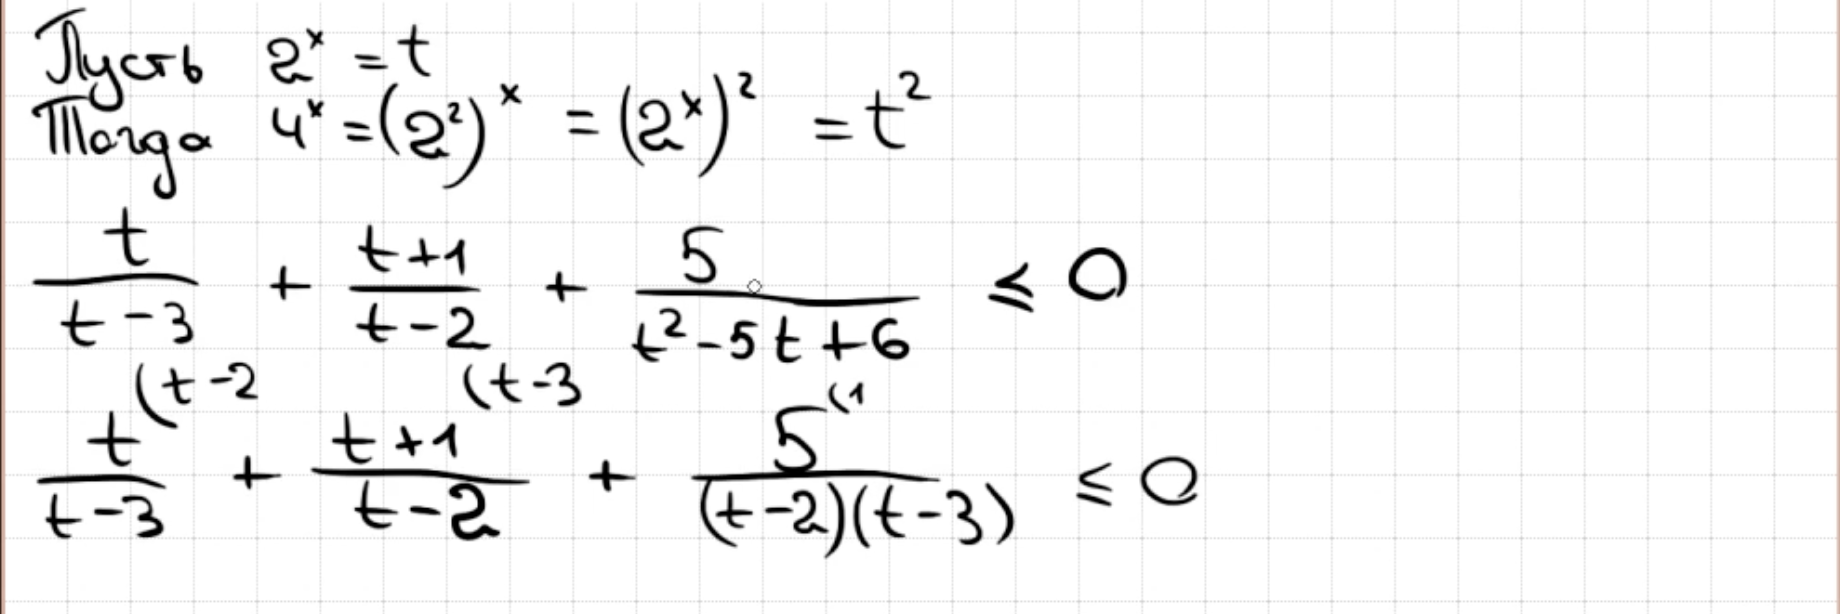 Пусть 2ˣ = t
Тогда 4ˣ = (2²)ˣ = (2ˣ)² = t²
t/(t-3) + (t+1)/(t-2) + 5/(t²-5t+6) ≤ 0
(t-2 (t-3 (1
t/(t-3) + (t+1)/(t-2) + 5/((t-2)(t-3)) ≤ 0